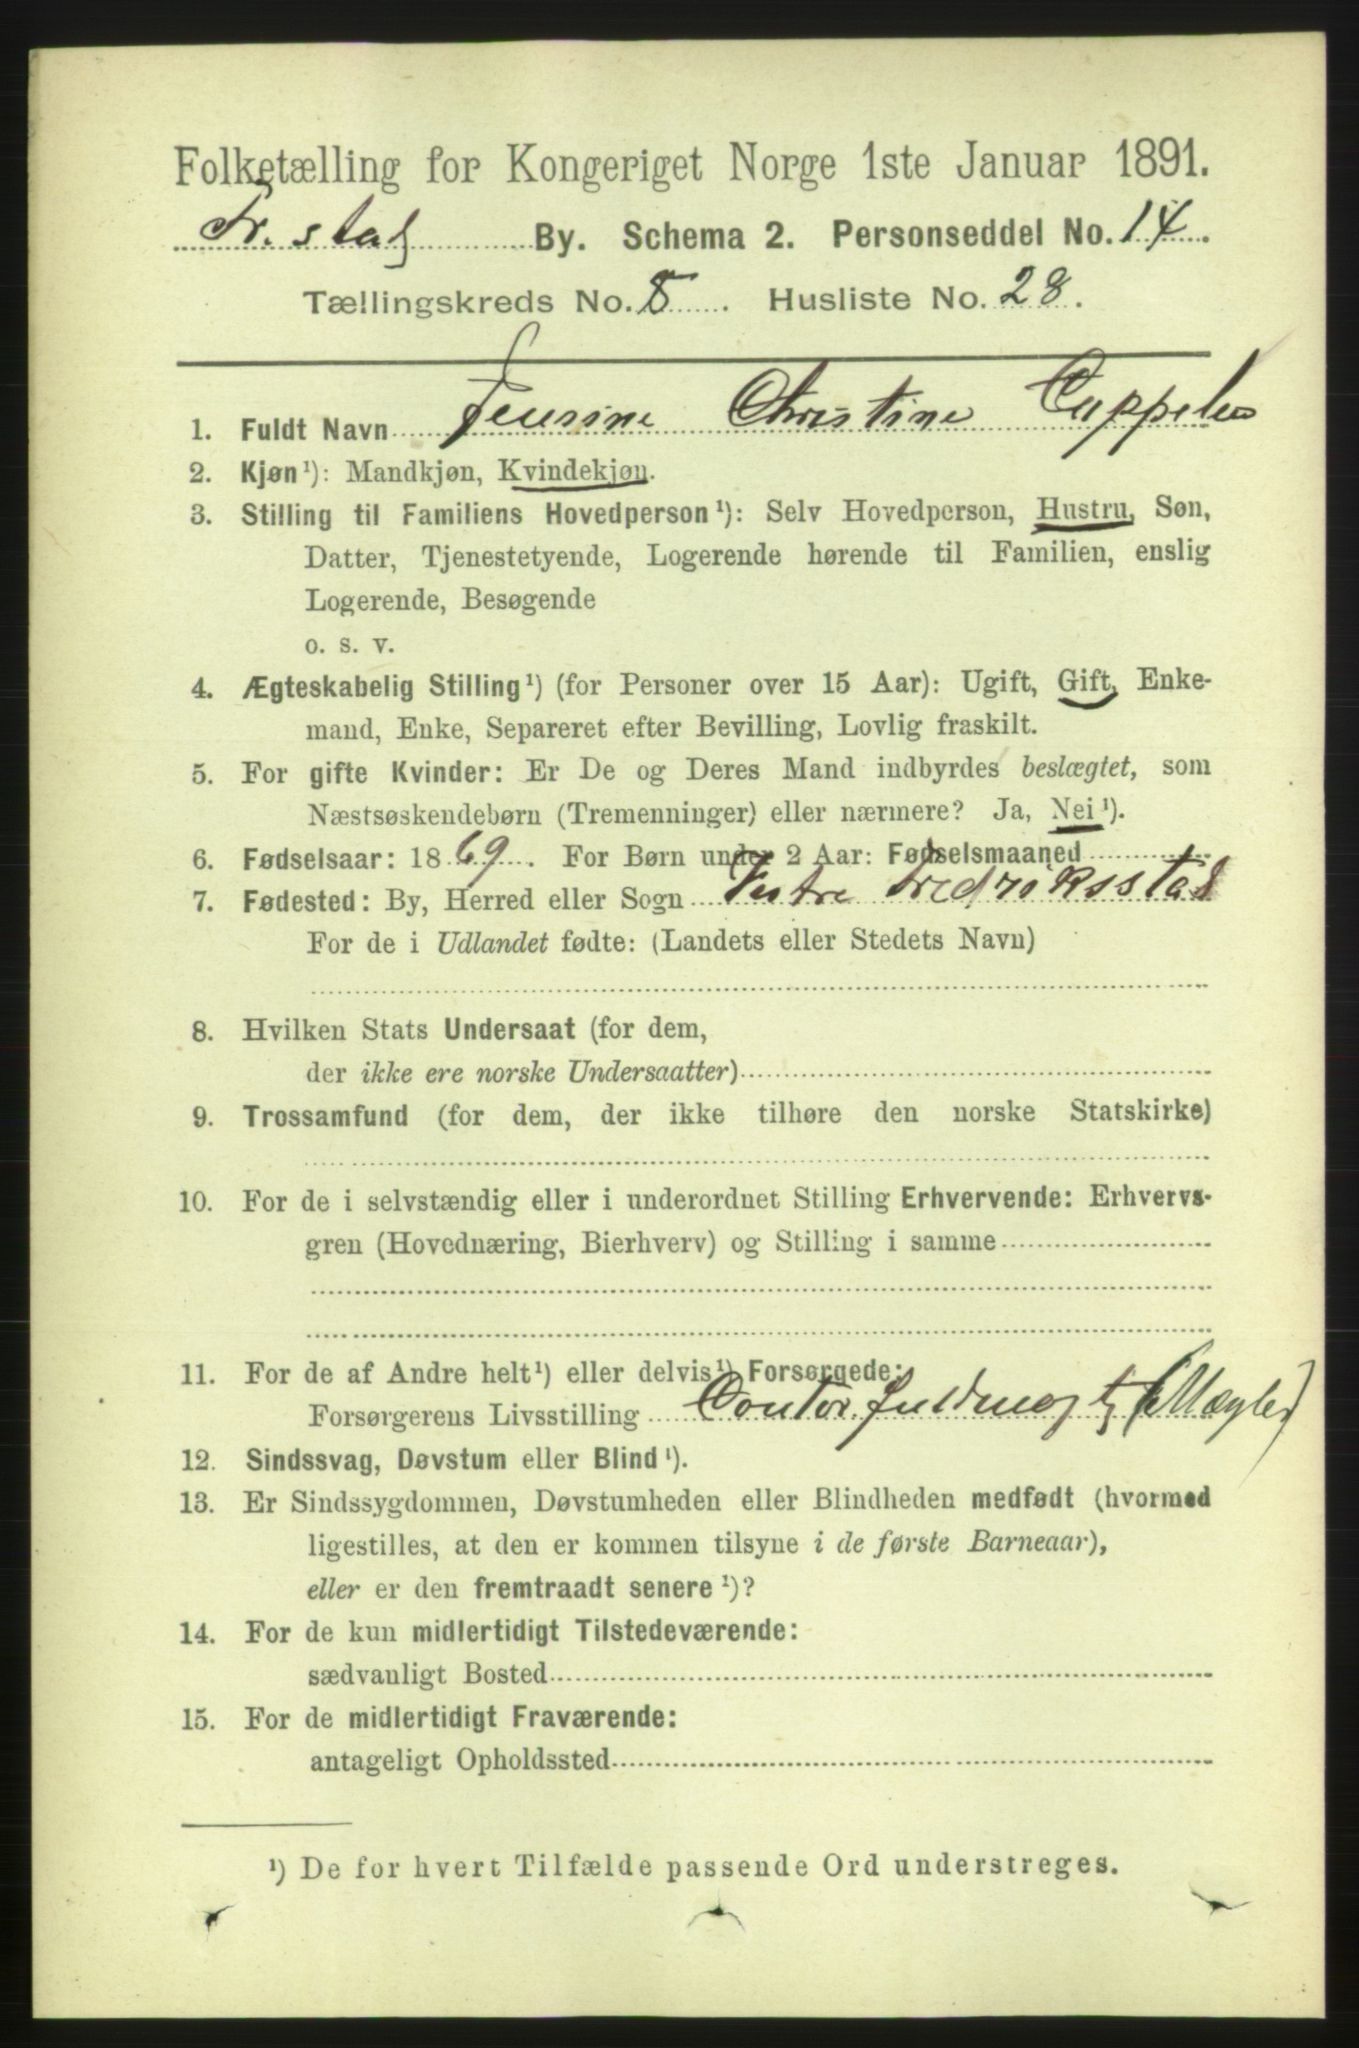 Folketælling for Kongeriget Norge 1ste Januar 1891.
Fr.stad By. Schema 2. Personseddel No. 14.
Tællingskreds No. 8. Husliste No. 28.
1. Fuldt Navn Jensine Christine Cappelen
2. Kjøn¹): Mandkjøn, Kvindekjøn.
3. Stilling til Familiens Hovedperson¹): Selv Hovedperson, Hustru, Søn,
Datter, Tjenestetyende, Logerende hørende til Familien, enslig
Logerende, Besøgende
o. s. v.
4. Ægteskabelig Stilling¹) (for Personer over 15 Aar): Ugift, Gift, Enke-
mand, Enke, Separeret efter Bevilling, Lovlig fraskilt.
5. For gifte Kvinder: Er De og Deres Mand indbyrdes beslægtet, som
Næstsøskendebørn (Tremenninger) eller nærmere? Ja, Nei¹).
6. Fødselsaar: 1869. For Børn under 2 Aar: Fødselsmaaned
7. Fødested: By, Herred eller Sogn Vestre Fredriksstad
For de i Udlandet fødte: (Landets eller Stedets Navn)
8. Hvilken Stats Undersaat (for dem,
der ikke ere norske Undersaatter)
9. Trossamfund (for dem, der ikke tilhøre den norske Statskirke)
10. For de i selvstændig eller i underordnet Stilling Erhvervende: Erhvervs-
gren (Hovednæring, Bierhverv) og Stilling i samme
11. For de af Andre helt¹) eller delvis¹) Forsørgede:
Forsørgerens Livsstilling Contorfuldmægtig (Mægler)
12. Sindssvag, Døvstum eller Blind¹).
13. Er Sindssygdommen, Døvstumheden eller Blindheden medfødt (hvormed
ligestilles, at den er kommen tilsyne i de første Barneaar),
eller er den fremtraadt senere¹)?
14. For de kun midlertidigt Tilstedeværende:
sædvanligt Bosted
15. For de midlertidigt Fraværende:
antageligt Opholdssted
¹) De for hvert Tilfælde passende Ord understreges.